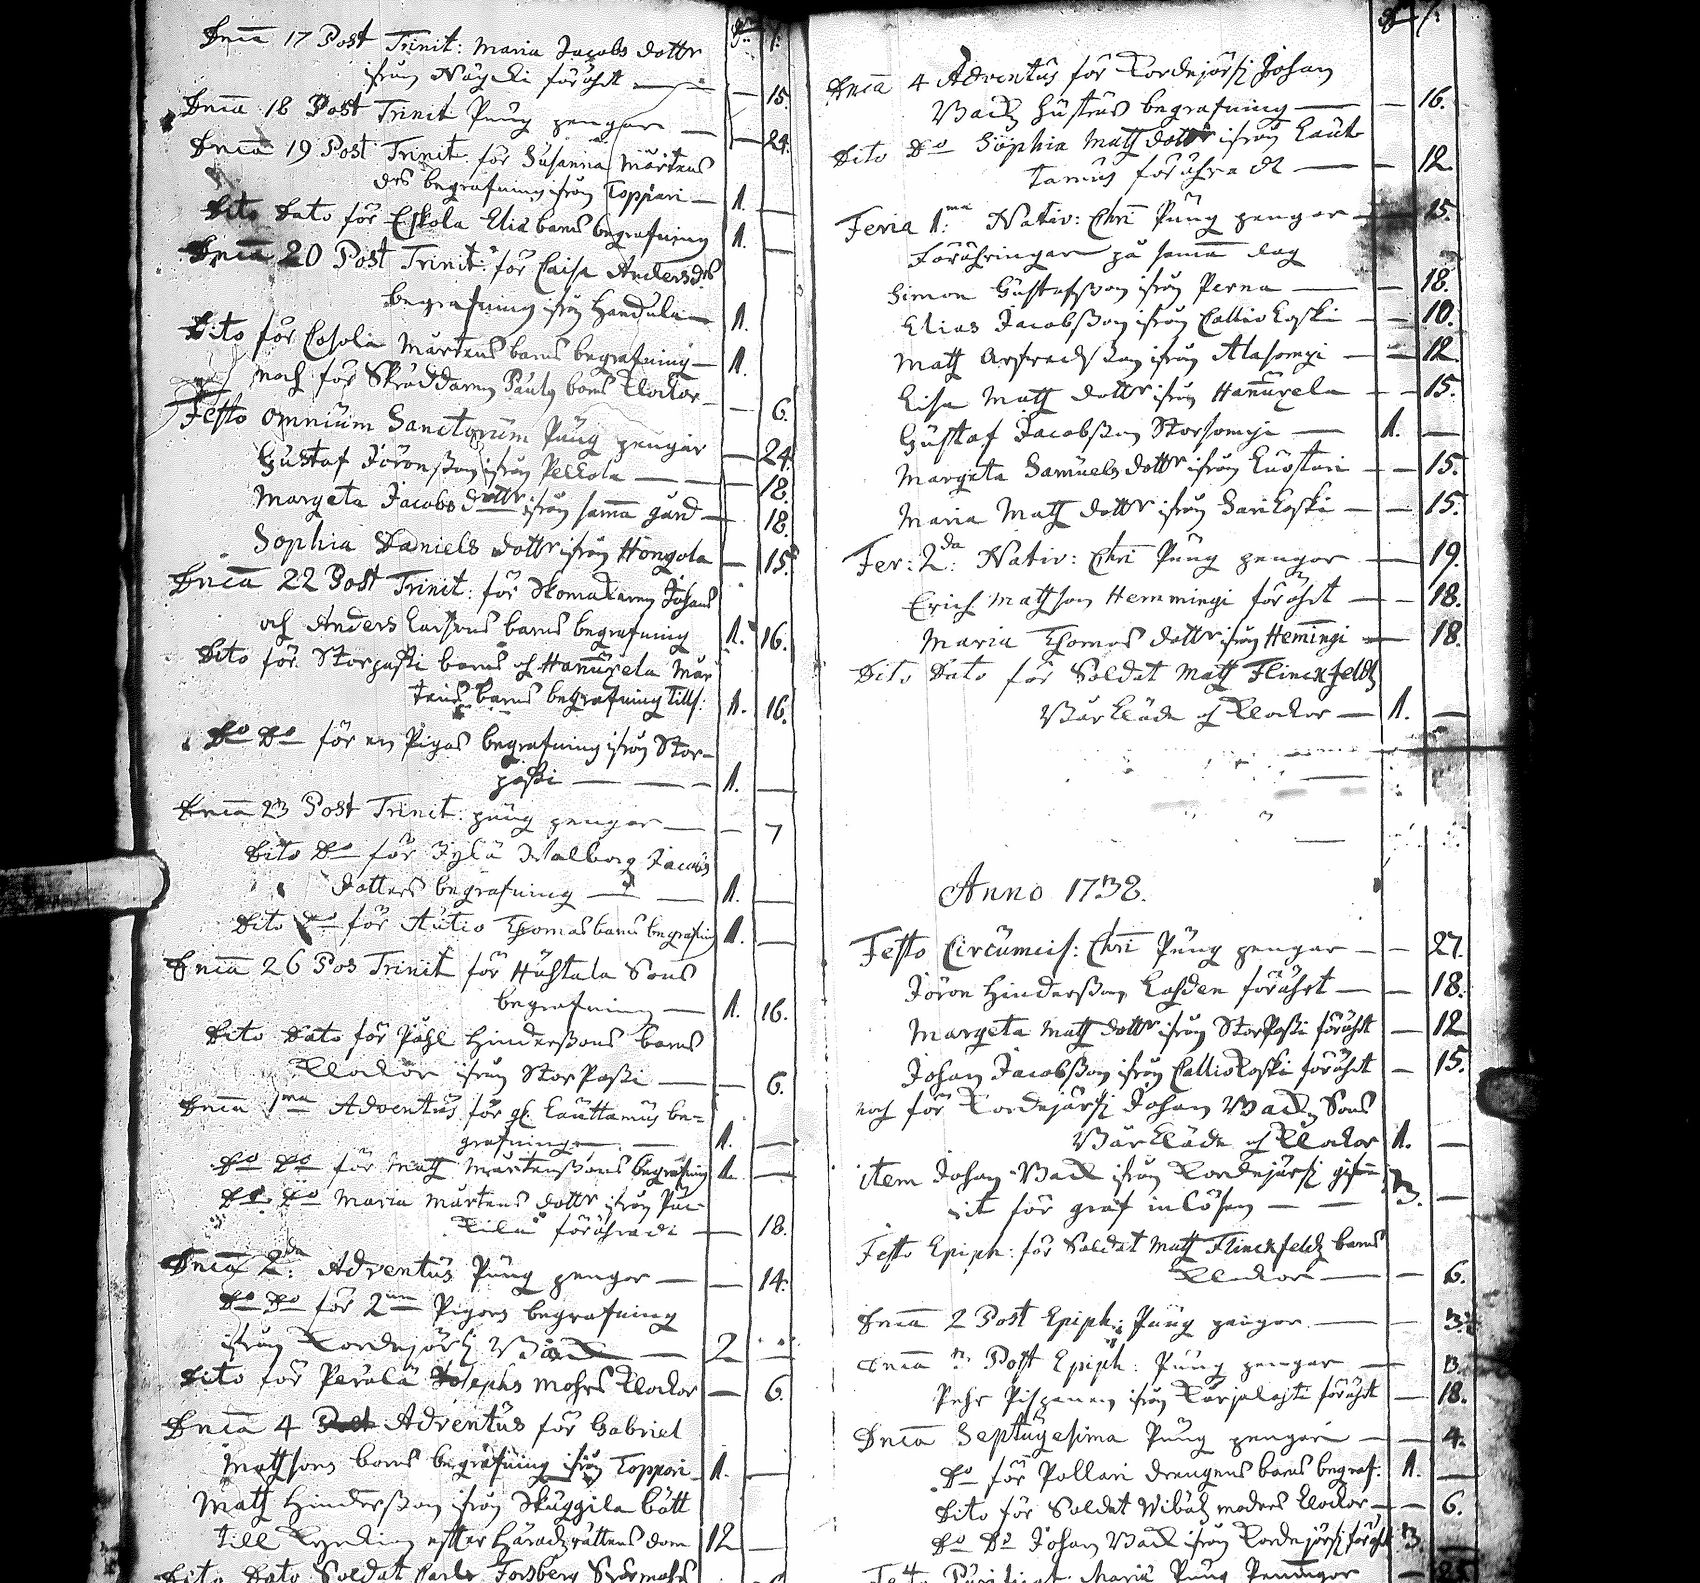 Dnica 17 Post Trinit: Maria Jacobs dottr
ifrån föröhrt — 15.
Dnica 18 Post Trinit Pung pengar — 24.
Dnica 19 Post Trinit. för Susanna Mårtens
drs begrafning ifrån Toppari — 1. —
Dito Dato för Eskola Elia barns begrafning 1. —
Dnica 20 Post Trinit: för Caisa Andersdr
begrafning ifrån Handula — 1.
Dito för Mårtens barns begrafning — 1.
noch för Skräddaren barns klockor — 6.
Festo omnium Sanctorum Pung pengar — 24.
Gustaf Jöronßon ifrån Pelkola — 18.
Margeta Jacobs dottr ifrån samma gård — 18.
Sophia Daniels dottr ifrån Hongola — 15.
Dnica 22 Post Trinit: för Skomakaren Johans
och Anders Larsons barns begrafning 1. 16.
Dito för Storpassi barns och Hannukela Mår
tens barns begrafning tills: 1. 16.
Do Do för en Pigas begrafning ifrån Stor-
passi — 1. —
Dnica 23 Post Trinit: pung pengar — 7
Dito Do för Walborg Jacobs
dotters begrafning — 1. —
Dito Do för Autio Thomas barns begrafning 1. —
Dnica 26 Pos Trinit för Huhtala Sons
begrafning — 1. 16.
Dito Dato för Påhl Hinderßons barns
Klockor ifrån StorPassi — 6.
Dnica 1ma Adventus för gl. Lauttamus be-
grafning — 1. —
Do Do för Math Mårtenßons begrafning 1. —
Do Do Maria Mårtens dottr ifrån
föröhrade — 18.
Dnica 2da Adventus Pung pengar — 14.
Do Do för 2 Pigors begrafning
ifrån Kordejärfi — 2
Dito för Perälä Josephs mohrs klockor — 6.
Dnica 4 Post Adventus för Gabriel
Mathsons barns begrafning ifrån Toppari 1. —
Math Hinderßon ifrån Skuggila bött
till Kyrckan efter Häradzrättens dom 12 —
Dito Dato Soldat Carls Forsberg
Dnica 4 Adventus för Kordejärfi Johan
Back Hustrus begrafning — 16.
Dito Do Sophia Math dottr ifrån Laut
tamus föröhradt — 12.
Feria 1ma: Nativ: Chri Pung pengar — 15.
Föröhringar på samma dag
Simon Gustafsson ifrån Perna — 18.
Elias Jacobßon ifrån Calliokoski — 10.
Math ifrån Alasomgi — 12.
Lisa Math dottr ifrån Hannukela — 15.
Gustaf Jacobßon Storsomgi — 1. —
Margeta Samuels dottr ifrån — 15.
Maria Math dottr ifrån Sarikoski — 15.
Fer: 2da: Nativ: Chri Pung pengar — 19.
Erich Mathson Hemmingi föröhrt — 18.
Maria Thomas dottr ifrån Hemingi — 18.
Dito Dato för Soldat Math Flinckfeldtz
Bårkläde och Klockor — 1. —
Anno 1738.
Festo Circumcis: Chri Pung pengar — 27.
Jöron Hinderßon Lahden föröhrt — 18.
Margeta Math dottr ifrån StorPassi föröhrt — 12
Johan Jacobßon ifrån Calliokoski föröhrt — 15.
noch för Kordejärfi Johan Back Sons
Bårkläde och Klockor 1. —
item Johan Back ifrån Kordejärfi gifvi
it för graf inlösen — 3. —
Festo Epiph: för Soldat Math Flinckfeldtz barns
Klockor — 6.
Dnica 2 Post Epiph: Pung pengar — 3.
Dnica 3 Post Epiph: Pung pengar — 13.
Pehr Pispanen ifrån Karjalahti föröhrt — 18.
Dnica Septuagesima Pung pengar — 4.
Do för Pollari drengens barns begraf. 1. —
Dito för Soldat modrs klockor — 6.
Do Do Johan Back ifrån Kordejärfi föröhrt 3.
Festo Purificat: Mariæ Pung Penningar — 25